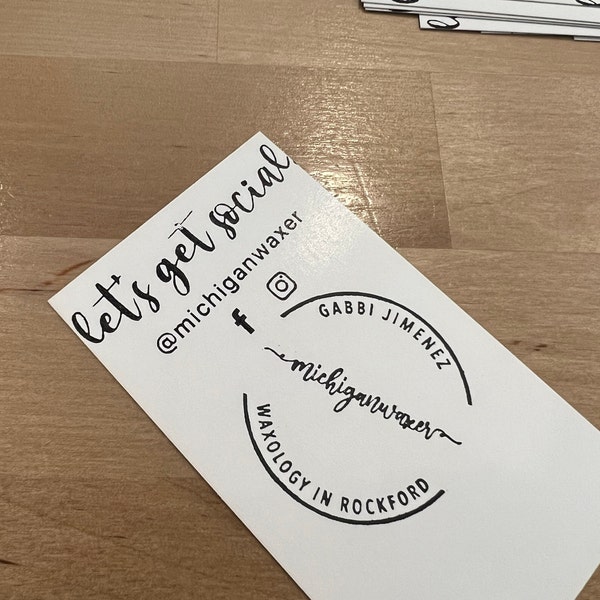 let's get social
@michiganwaxer
GABBI JIMENEZ
michiganwaxer
WAXOLOGY IN ROCKFORD